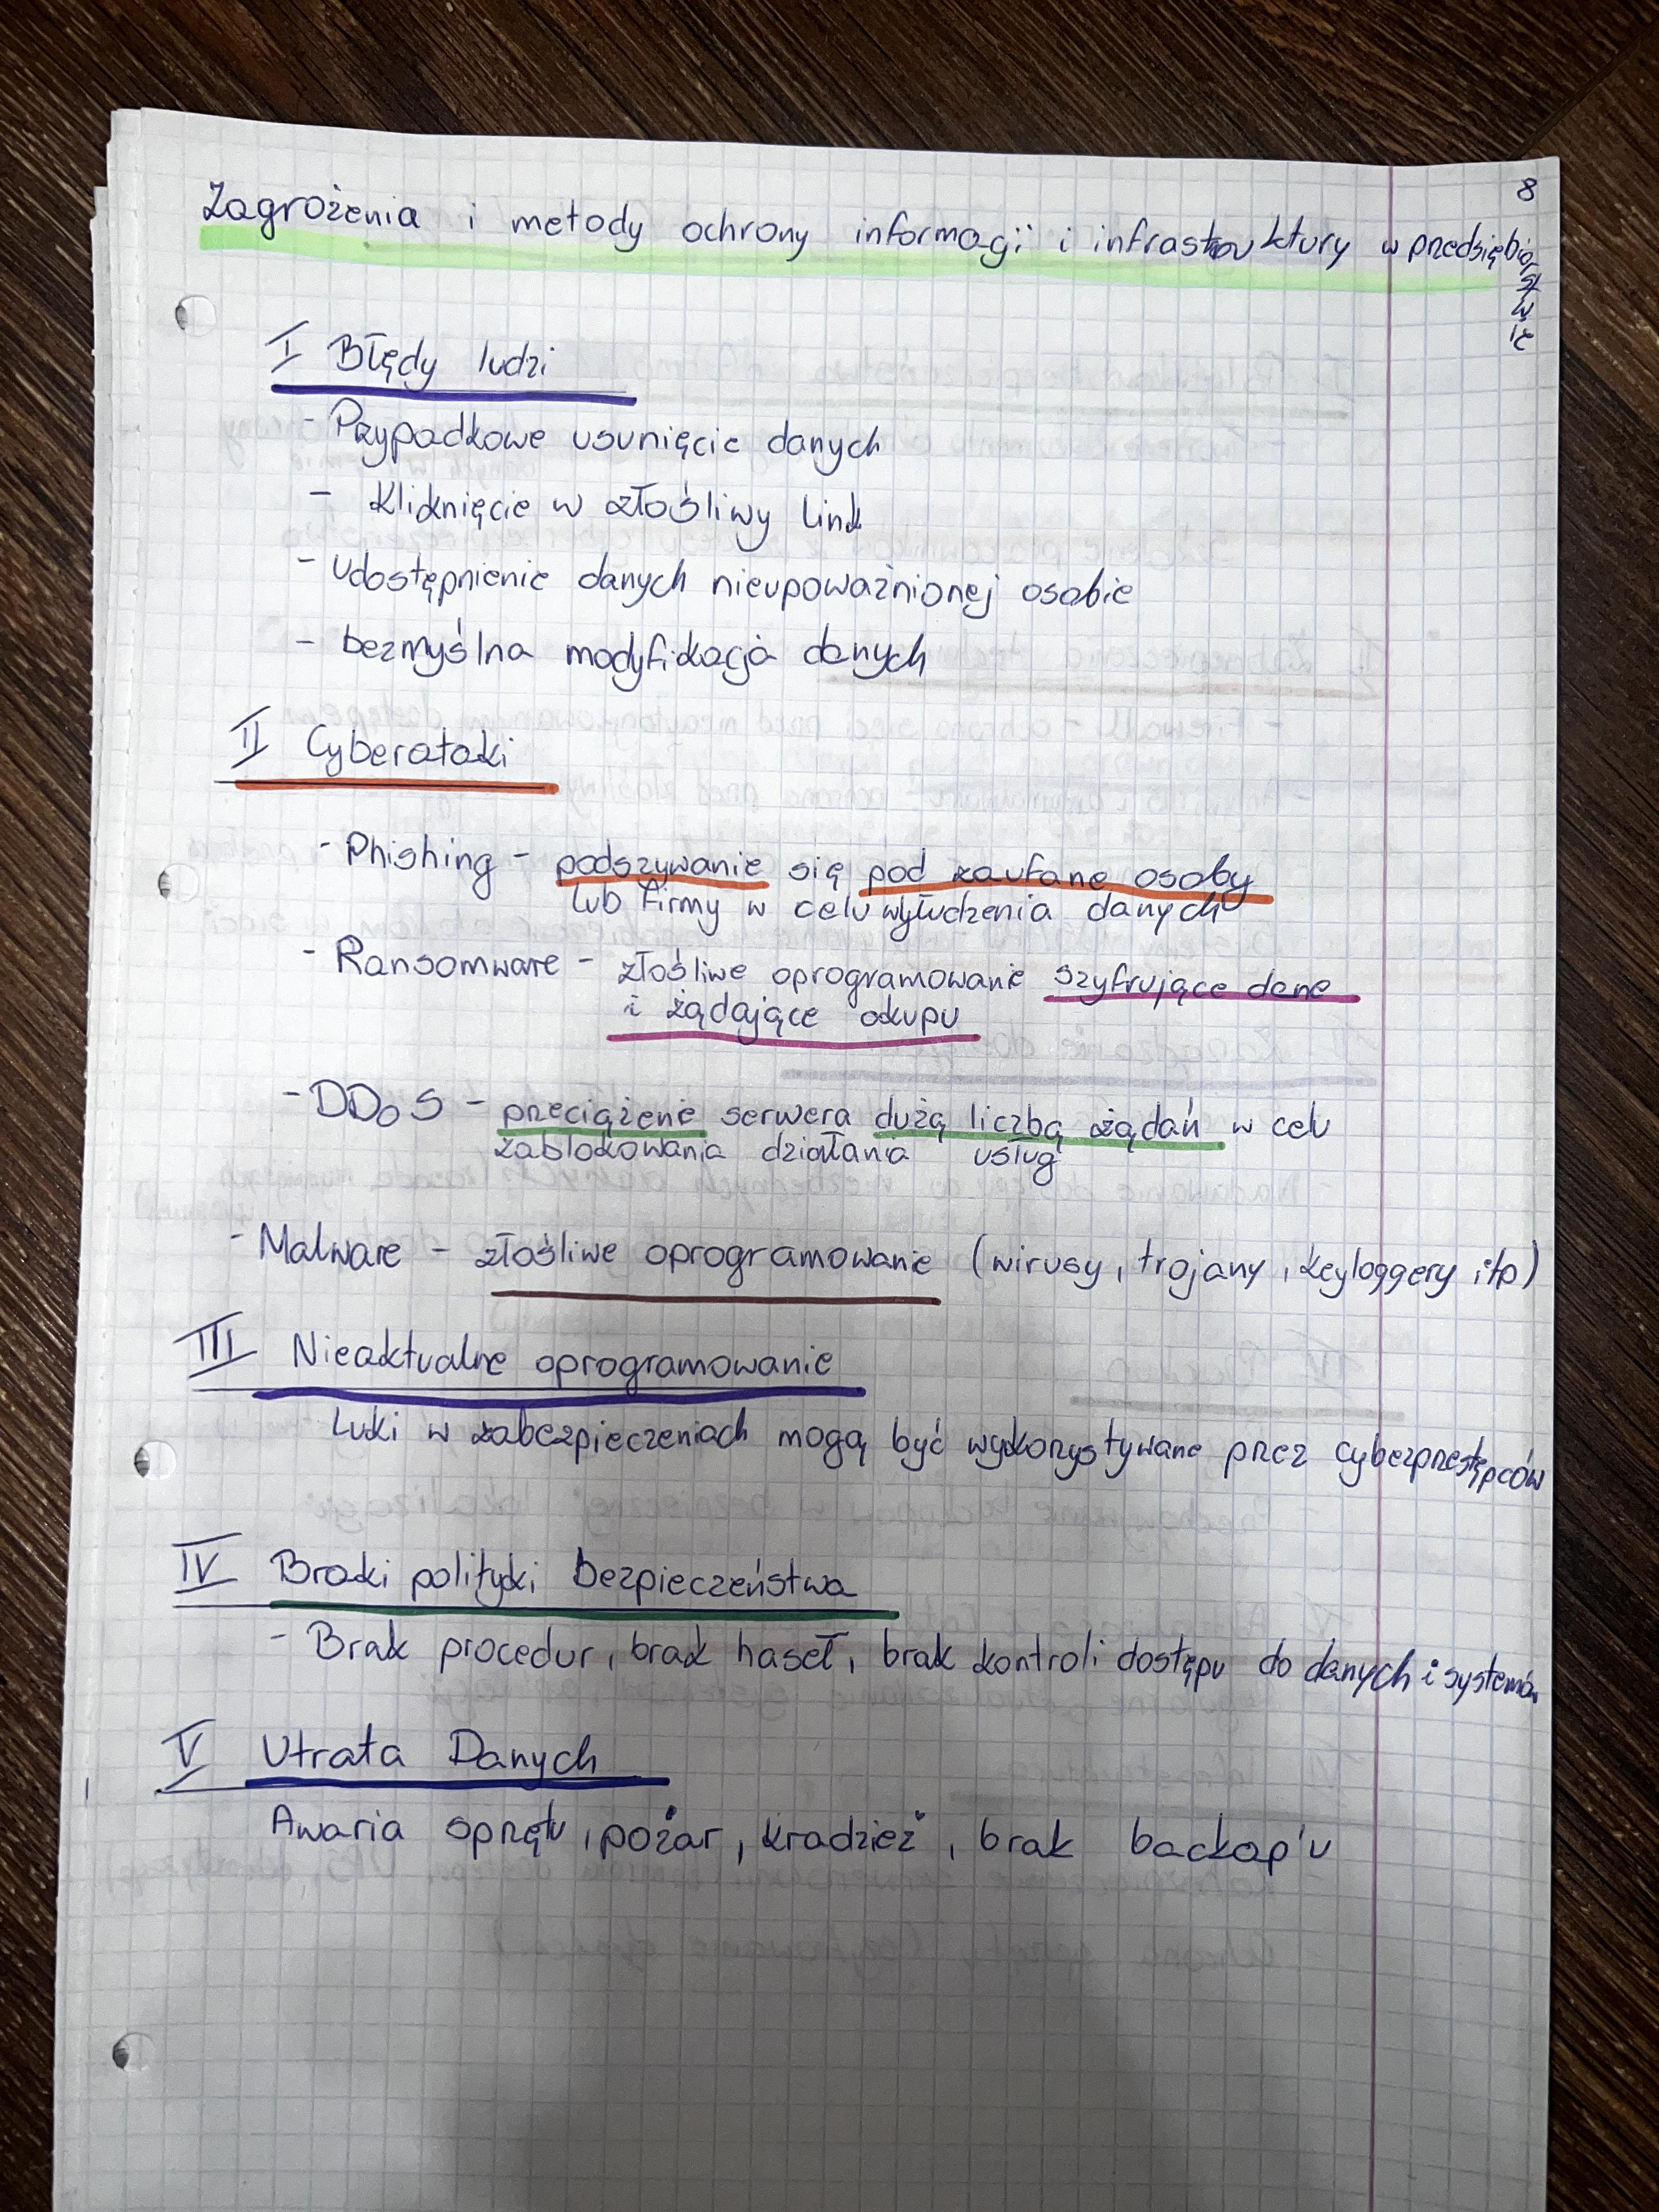 8
Zagrożenia i metody ochrony informacji i infrastruktury w przedsiębiorstwie
I Błędy ludzi
- Przypadkowe usunięcie danych
- Kliknięcie w złośliwy link
- Udostępnienie danych nieupoważnionej osobie
- bezmyślna modyfikacja danych
II Cyberataki
- Phishing - podszywanie się pod zaufane osoby
lub firmy w celu wyłudzenia danych
- Ransomware - złośliwe oprogramowanie szyfrujące dane
i żądające okupu
- DDoS - przeciążenie serwera dużą liczbą żądań w celu
zablokowania działania usług
- Malware - złośliwe oprogramowanie (wirusy, trojany, keyloggery itp)
III Nieaktualne oprogramowanie
Luki w zabezpieczeniach mogą być wykorzystywane przez cyberprzestępców
IV Braki polityki bezpieczeństwa
- Brak procedur, brak haseł, brak kontroli dostępu do danych i systemów
V Utrata Danych
Awaria sprzętu, pożar, kradzież, brak backap'u